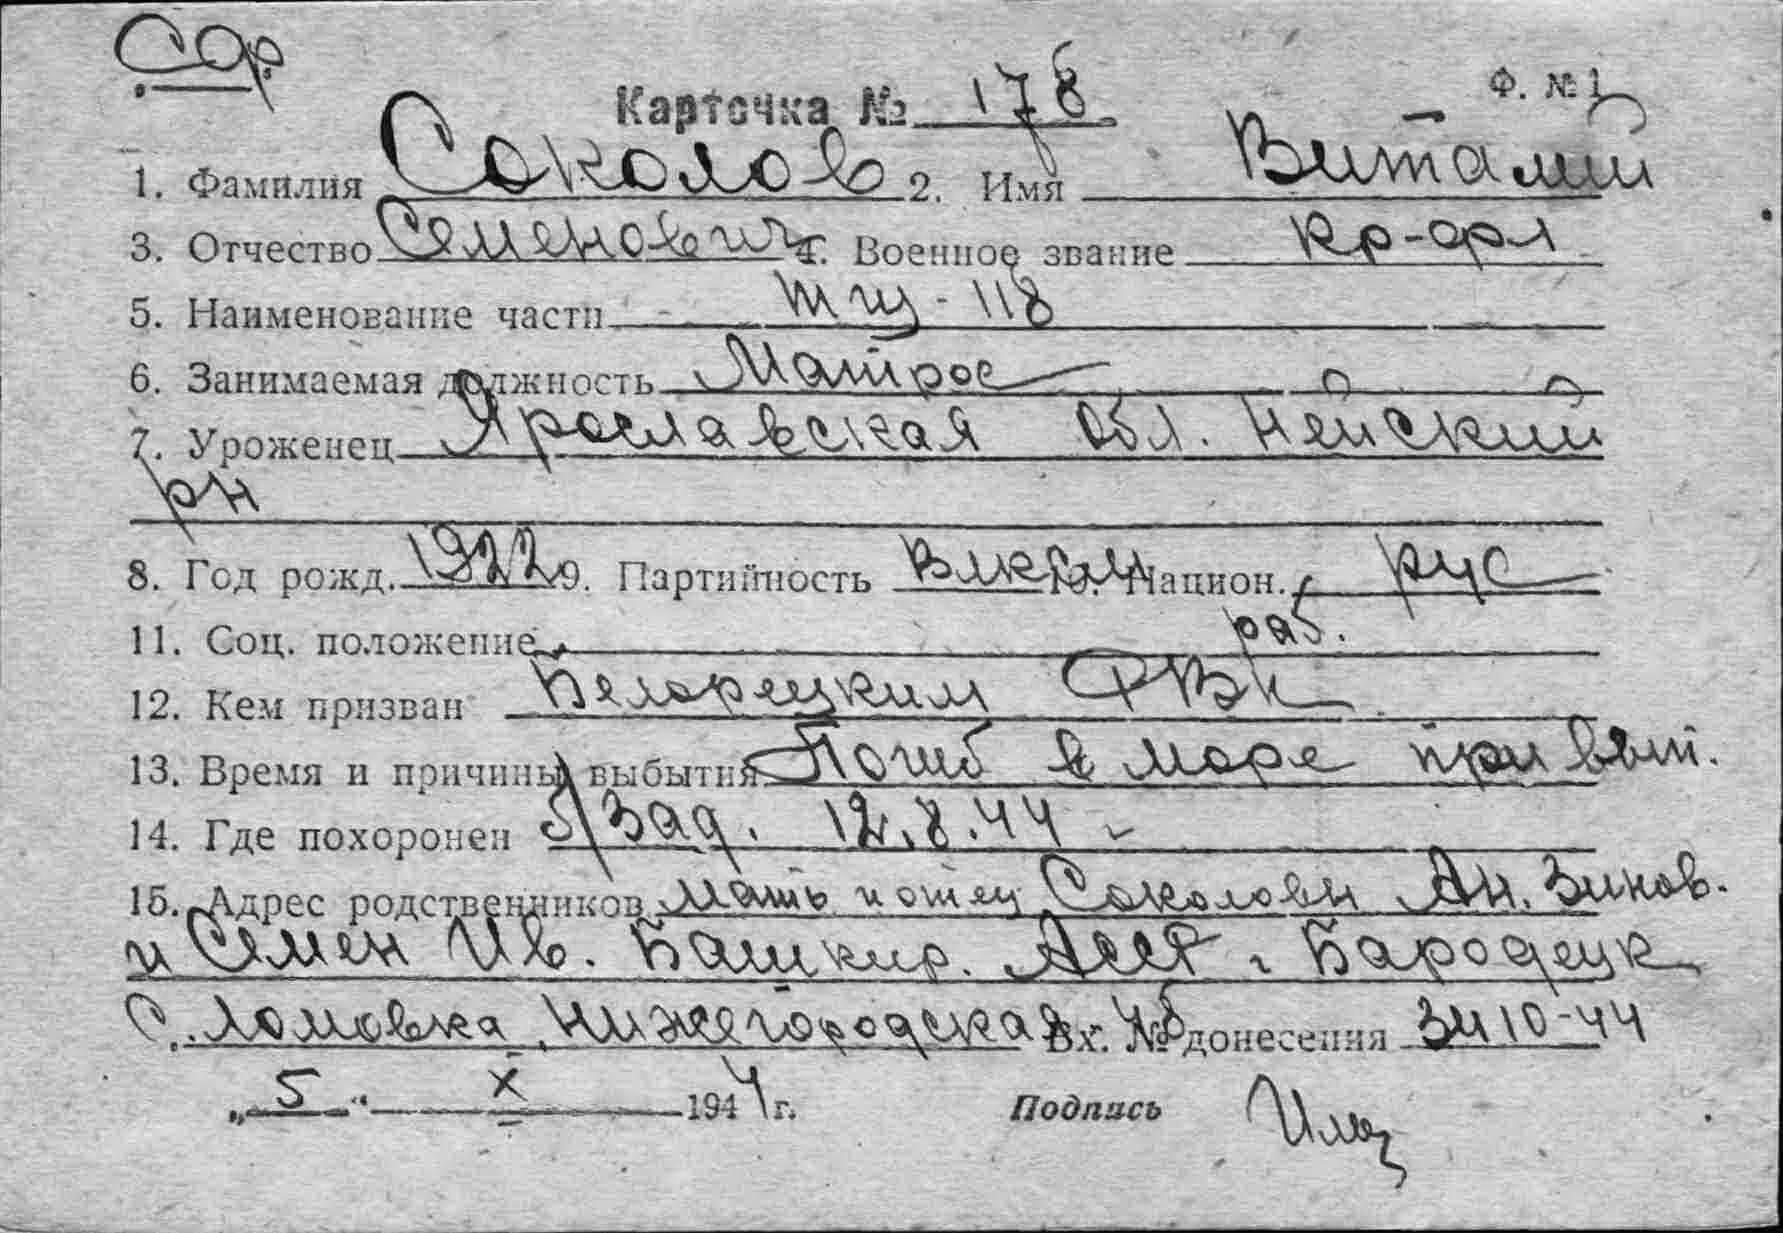 Ф. № 1
Карточка № 178
1. Фамилия Соколов 2. Имя Виталий
3. Отчество Семенович 4. Военное звание кр-фл
5. Наименование части тщ-118
6. Занимаемая должность Матрос
7. Уроженец Ярославская обл. Нейский
рн
8. Год рожд. 1922 9. Партийность ВЛКСМ 10. Национ. рус
11. Соц. положение раб.
12. Кем призван Белорецким РВК
13. Время и причины выбытия Погиб в море при вып.
14. Где похоронен б/зад. 12.8.44
15. Адрес родственников мать и отец Соколовы Ан. Зинов.
и Семен Ив. Башкир. АССР г Бародецк
С. Ломовка, Нижегородская Вх. № донесения 3410-44
„5“ X 1944 г. Подпись